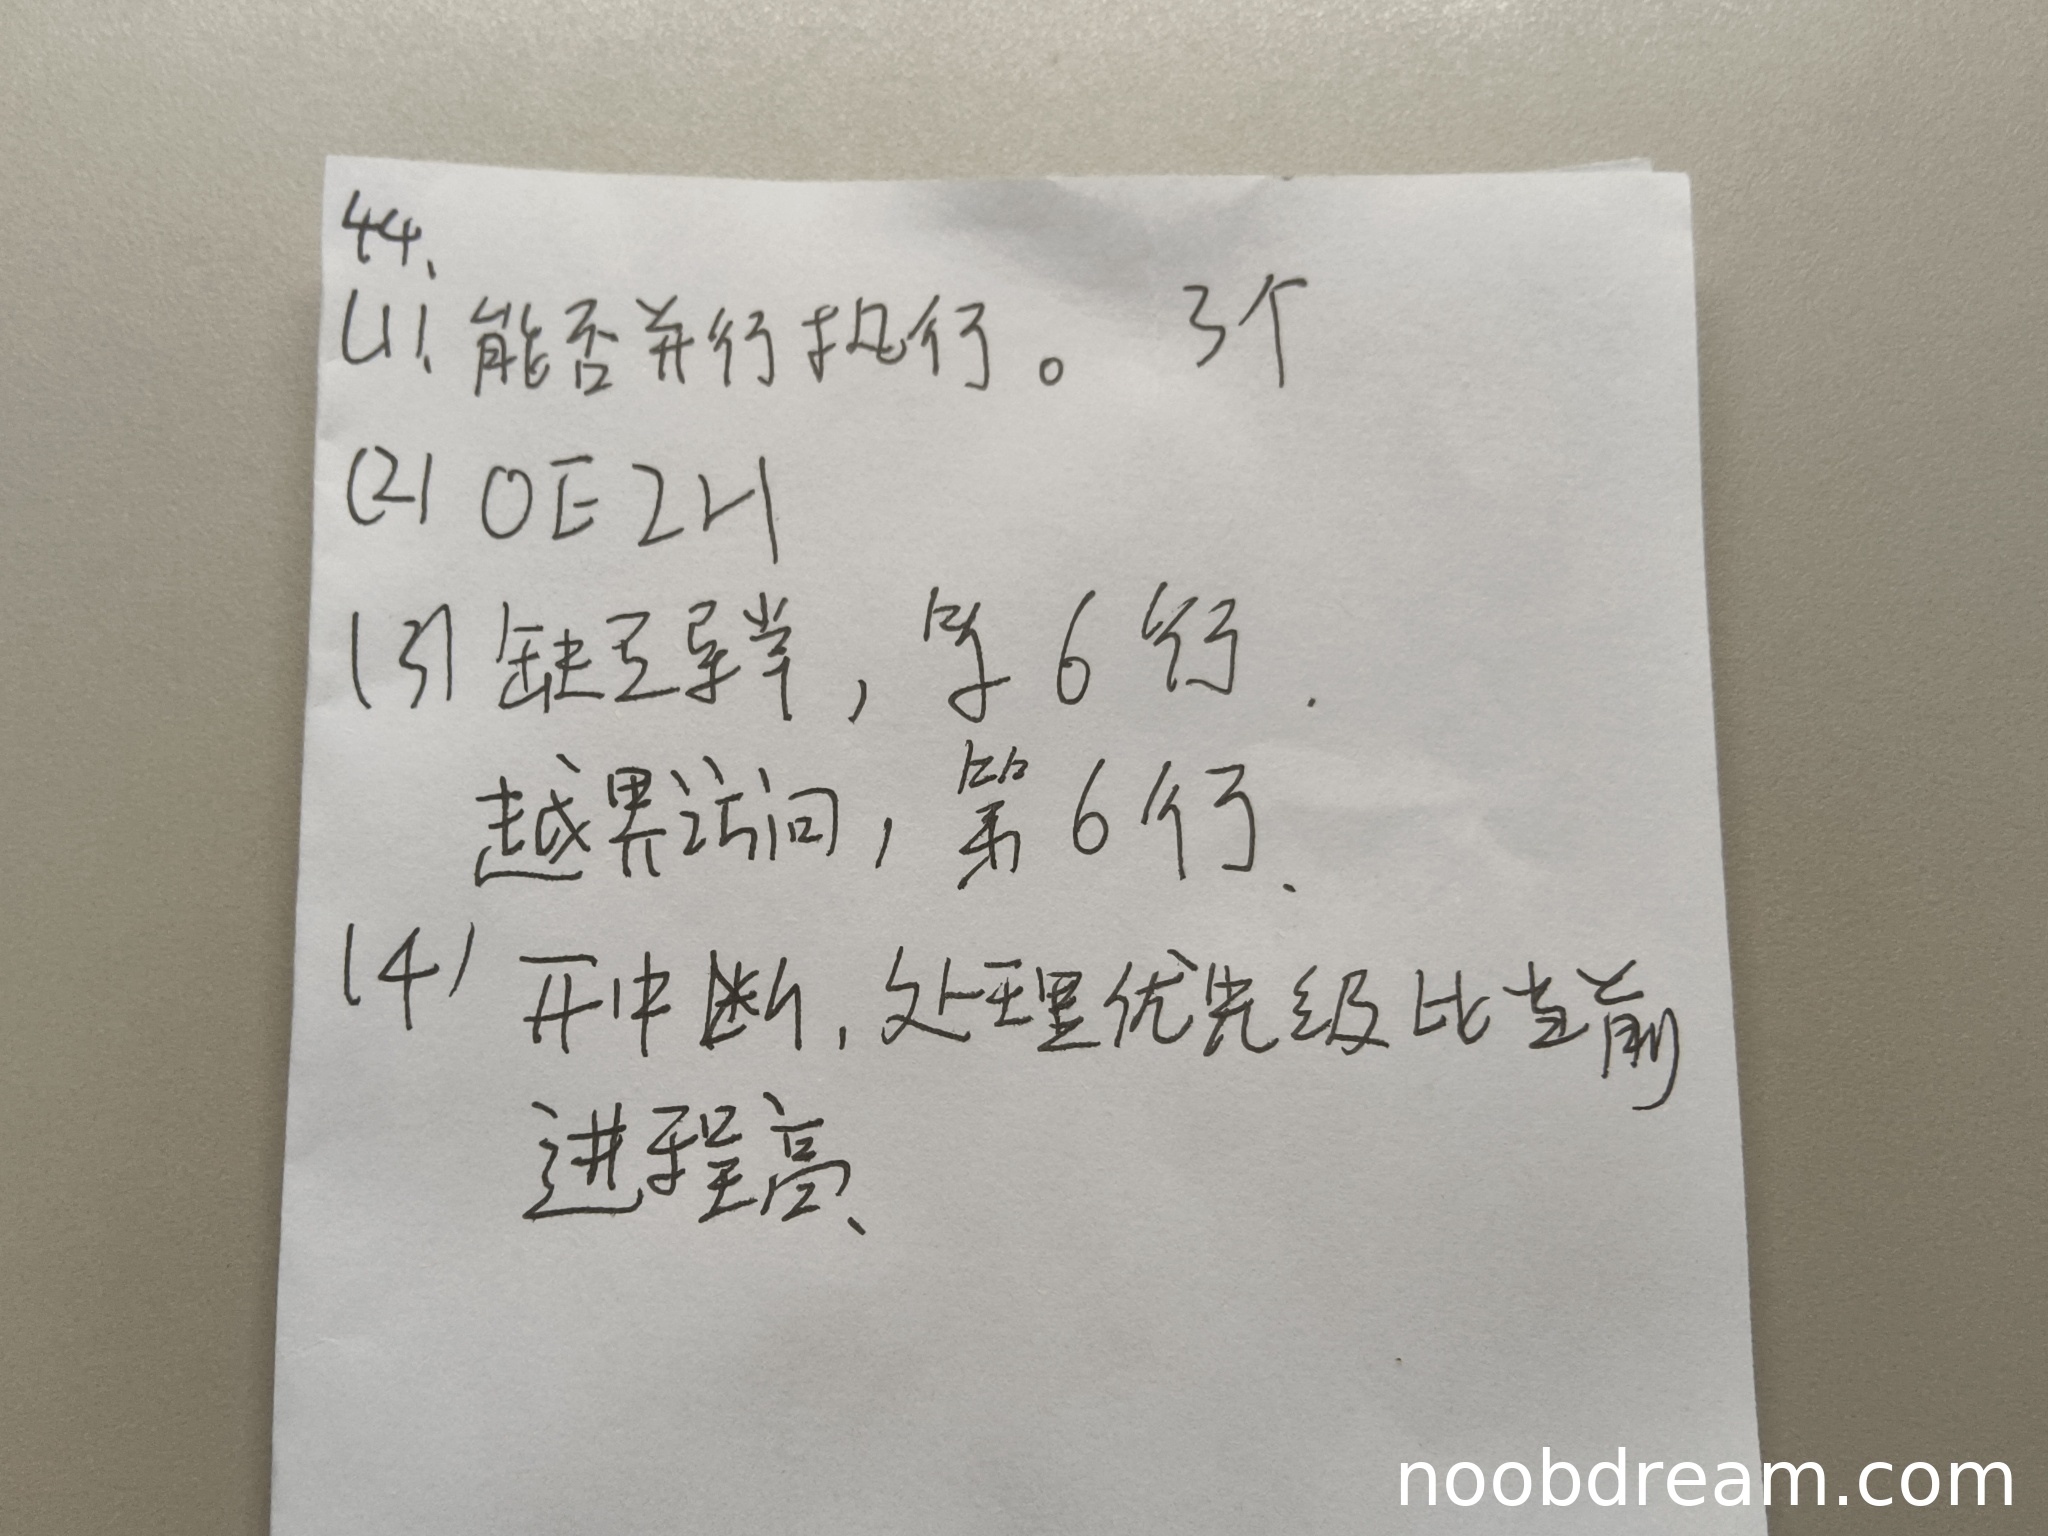 44、
(1)、能否并行执行。 3个
(2) 0E2H
(3) 缺页异常，第6行.
越界访问，第6行、
(4) 开中断，处理优先级比当前
进程高、
noobdream.com